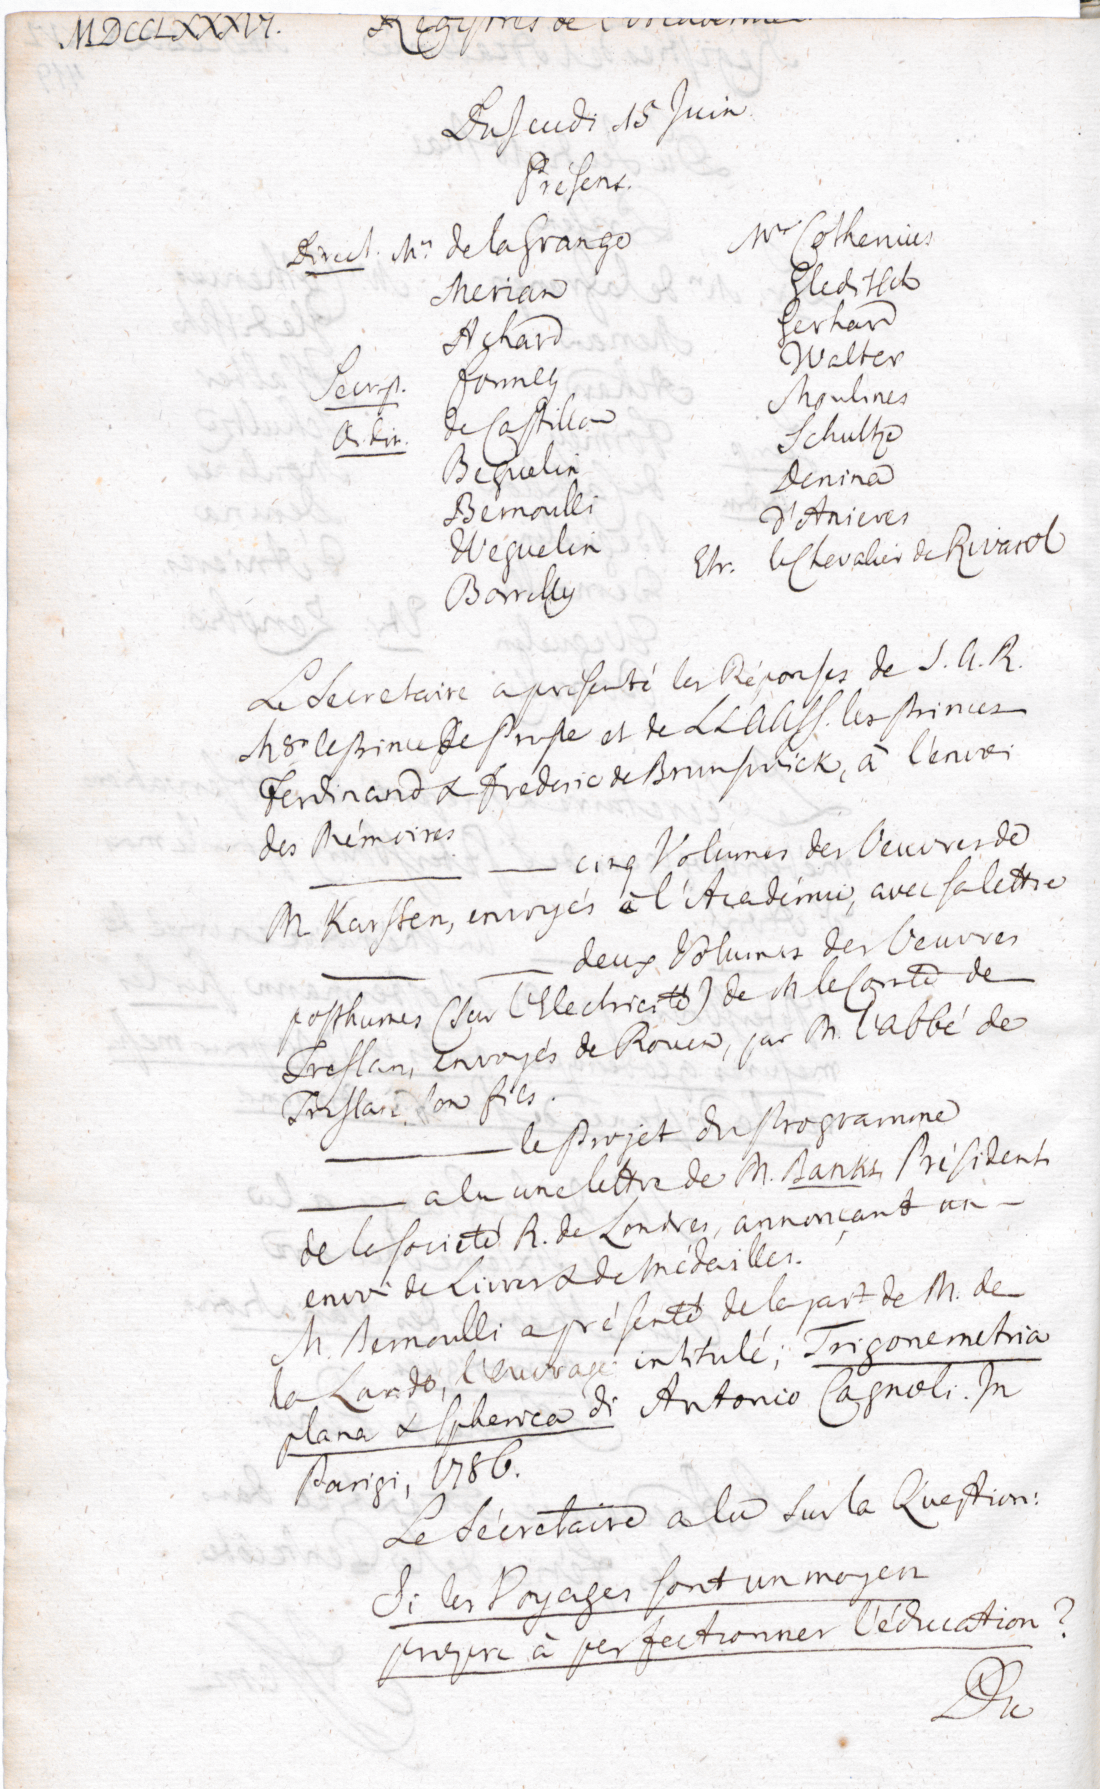 MDCCLXXXVI. Registres de l'Academie
Du Jeudi 15 Juin
Présens.
Direct. Mrs. de la Grange
Merian
Achard
Secrp. Formey
de Castillon
Beguelin
Bernoulli
Weguelin
Borrelly
Mrs Cothenius
Gleditsch
Gerhard
Walter
Moulines
Schultze
Denina
d'Anieres
Etr. le Chevalier de Rivarol
Le Secretaire a présenté les Réponses de S. A. R.
Mgr le Prince de Prusse et de LL AA SS. les Princes
Ferdinand & Frederic de Brunswick, à l'envoi
des Mémoires
——— — cinq Volumes des Oeuvres de
M. Karsten, envoyés à l'Académie, avec sa lettre
——— — deux Volumes des Oeuvres
posthumes (sur l'Electricité) de M le Comte de
Tressan, envoyés de Rouen, par M. l'abbé de
Tressan son fils.
——— le Projet du Programme
——— a lu une lettre de M. Banks, Président
de la Societé R. de Londres, annonçant un —
envoi de Livres & de Médailles.
M. Bernoulli a présenté de la part de M. de
la Lande, l'ouvrage intitulé; Trigonometria
plana & spherica di Antonio Cagnoli. In
Parigi, 1786.
Le Sécretaire a lu sur la Question:
Si les Voyages sont un moyen
propre à perfectionner l'éducation?
Du